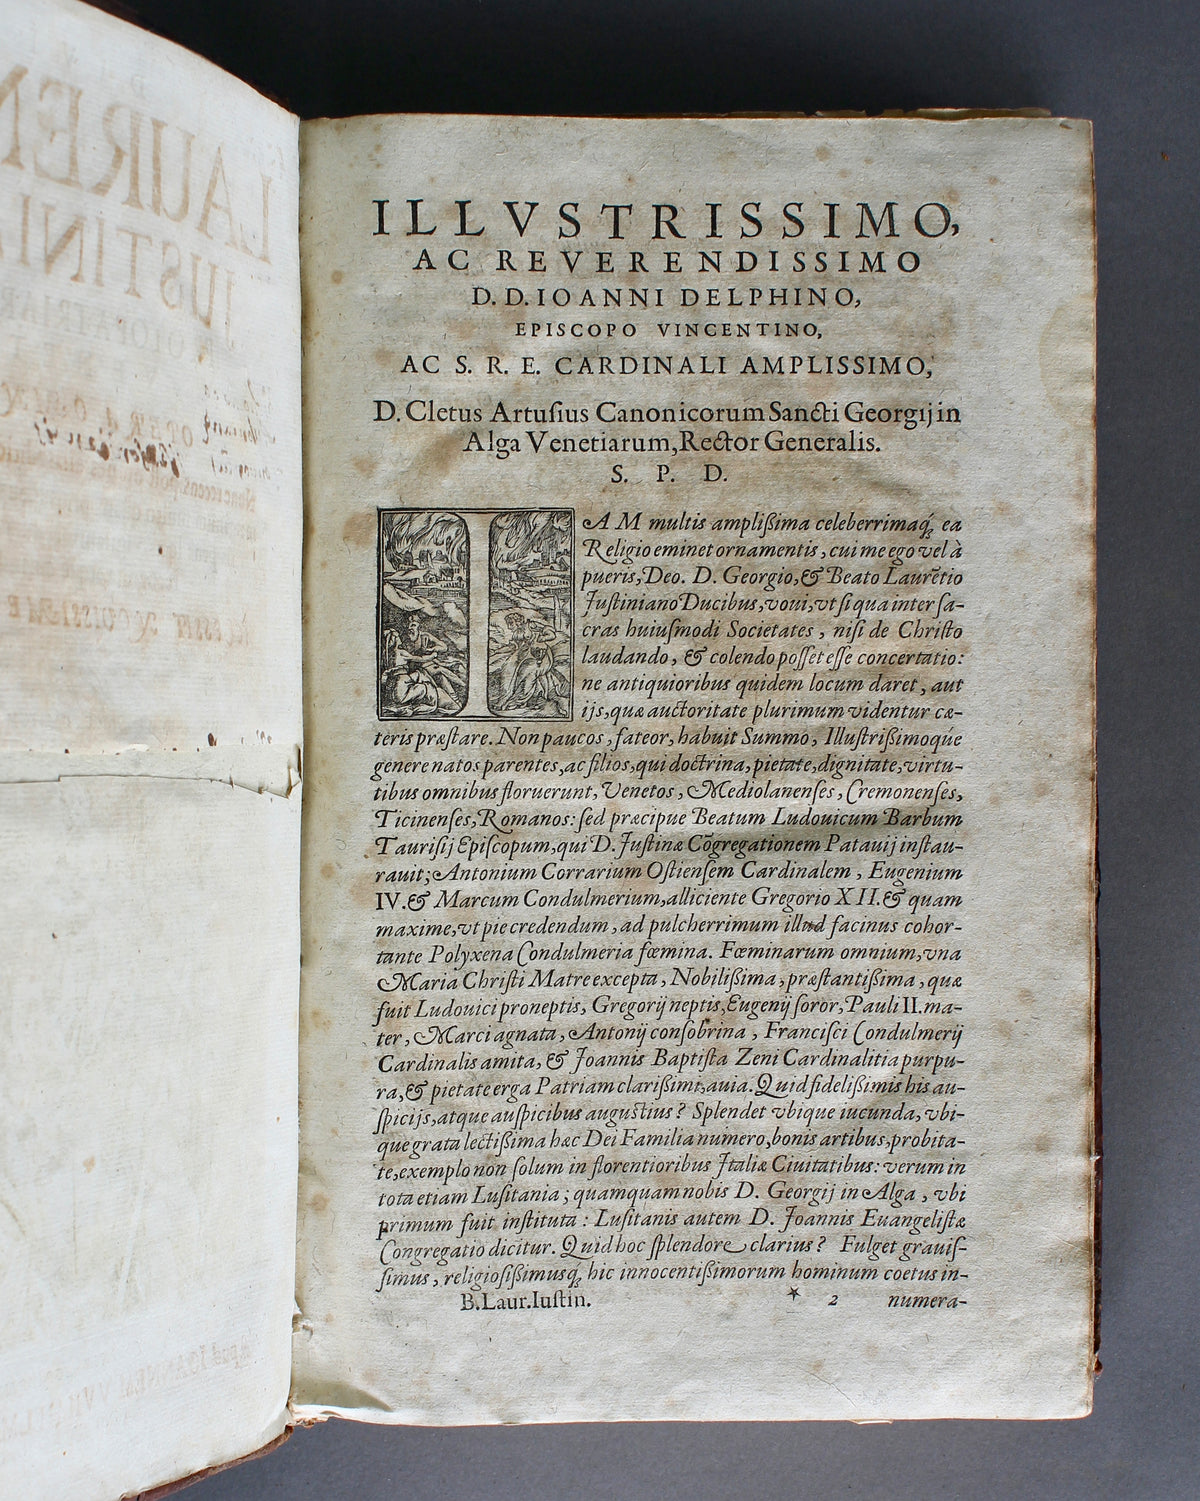 ILLVSTRISSIMO,
AC REVERENDISSIMO
D. D. IOANNI DELPHINO,
EPISCOPO VINCENTINO,
AC S. R. E. CARDINALI AMPLISSIMO,
D. Cletus Artuſius Canonicorum Sancti Georgij in
Alga Venetiarum, Rector Generalis.
S. P. D.
IAM multis ampliſsima celeberrimaq́; ea
Religio eminet ornamentis, cui me ego vel à
pueris, Deo. D. Georgio, & Beato Laurẽtio
Iuſtiniano Ducibus, voui, vt ſi qua inter ſa-
cras huiuſmodi Societates, niſi de Chriſto
laudando, & colendo poſſet eſſe concertatio:
ne antiquioribus quidem locum daret, aut
ijs, quæ auctoritate plurimum videntur cæ-
teris præſtare. Non paucos, fateor, habuit Summo, Illuſtriſsimoqúe
genere natos parentes, ac filios, qui doctrina, pietate, dignitate, virtu-
tibus omnibus floruerunt, Venetos, Mediolanenſes, Cremonenſes,
Ticinenſes, Romanos: ſed præcipue Beatum Ludouicum Barbum
Tauriſij Epiſcopum, qui D. Iuſtinæ Cõgregationem Patauij inſtau-
rauit; Antonium Corrarium Oſtienſem Cardinalem, Eugenium
IV. & Marcum Condulmerium, alliciente Gregorio XII. & quam
maxime, vt pie credendum, ad pulcherrimum illud facinus cohor-
tante Polyxena Condulmeria fœmina. Fœminarum omnium, vna
Maria Chriſti Matre excepta, Nobiliſsima, præſtantiſsima, quæ
fuit Ludouici proneptis, Gregorij neptis, Eugenij ſoror, Pauli II. ma-
ter, Marci agnata, Antonij conſobrina, Franciſci Condulmerij
Cardinalis amita, & Ioannis Baptiſta Zeni Cardinalitia purpu-
ra, & pietate erga Patriam clariſsimi, auia. Quid fideliſsimis his au-
ſpicijs, atque auſpicibus auguſtius? Splendet vbique iucunda, vbi-
que grata lectiſsima hæc Dei Familia numero, bonis artibus, probita-
te, exemplo non ſolum in florentioribus Italiæ Ciuitatibus: verum in
tota etiam Luſitania; quamquam nobis D. Georgij in Alga, vbi
primum fuit inſtituta: Luſitanis autem D. Ioannis Euangeliſtæ
Congregatio dicitur. Quid hoc ſplendore clarius? Fulget grauiſ-
ſimus, religioſiſsimusq́; hic innocentiſsimorum hominum coetus in-
B. Laur. Iuſtin. * 2 numera-